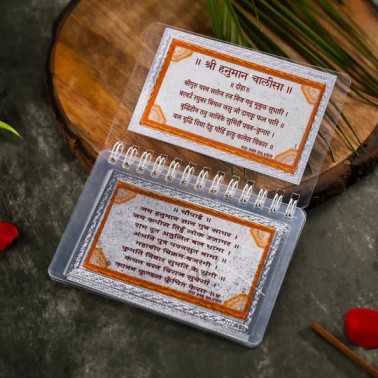 ॥ श्री हनुमान चालीसा ॥
॥ दोहा ॥
श्रीगुरु चरन सरोज रज निज मनु मुकुरु सुधारि ।
बरनउँ रघुबर बिमल जसु जो दायकु फल चारि ॥
बुद्धिहीन तनु जानिके सुमिरौं पवन-कुमार ।
बल बुद्धि बिद्या देहु मोहिं हरहु कलेस बिकार ॥
॥ चौपाई ॥
जय हनुमान ज्ञान गुन सागर ।
जय कपीस तिहुँ लोक उजागर ॥
राम दूत अतुलित बल धामा ।
अंजनि पुत्र पवनसुत नामा ॥
महाबीर बिक्रम बजरंगी ।
कुमति निवार सुमति के संगी ॥
कंचन बरन बिराज सुबेसा ।
कानन कुण्डल कुंचित केसा ॥